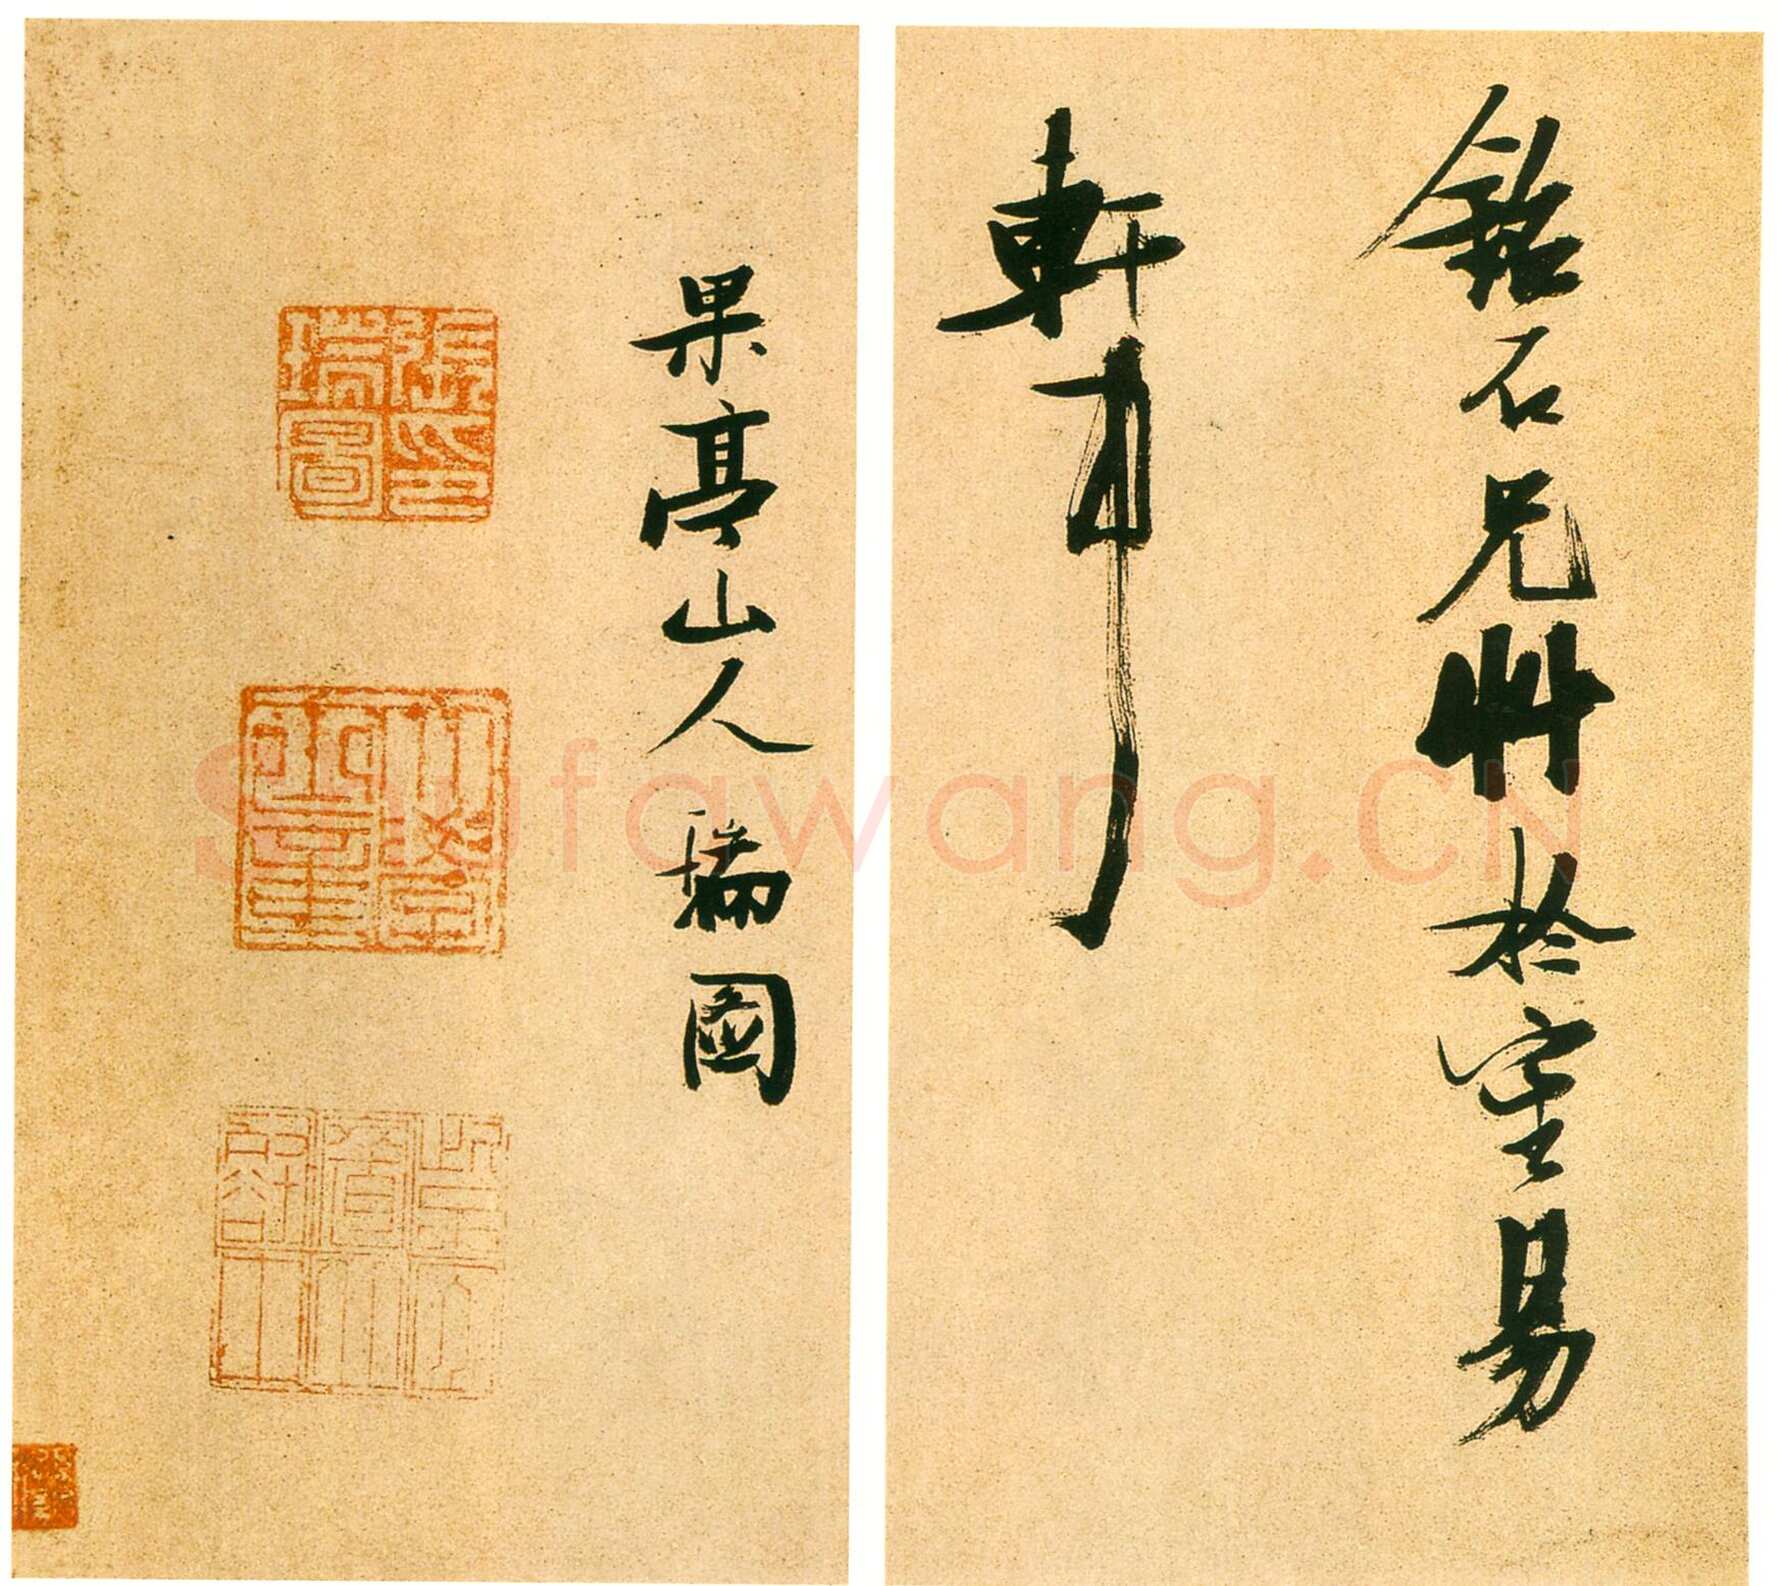 銘石兄艸於室易
軒中
果亭山人瑞圖
張瑞圖印
Shufawang.CN